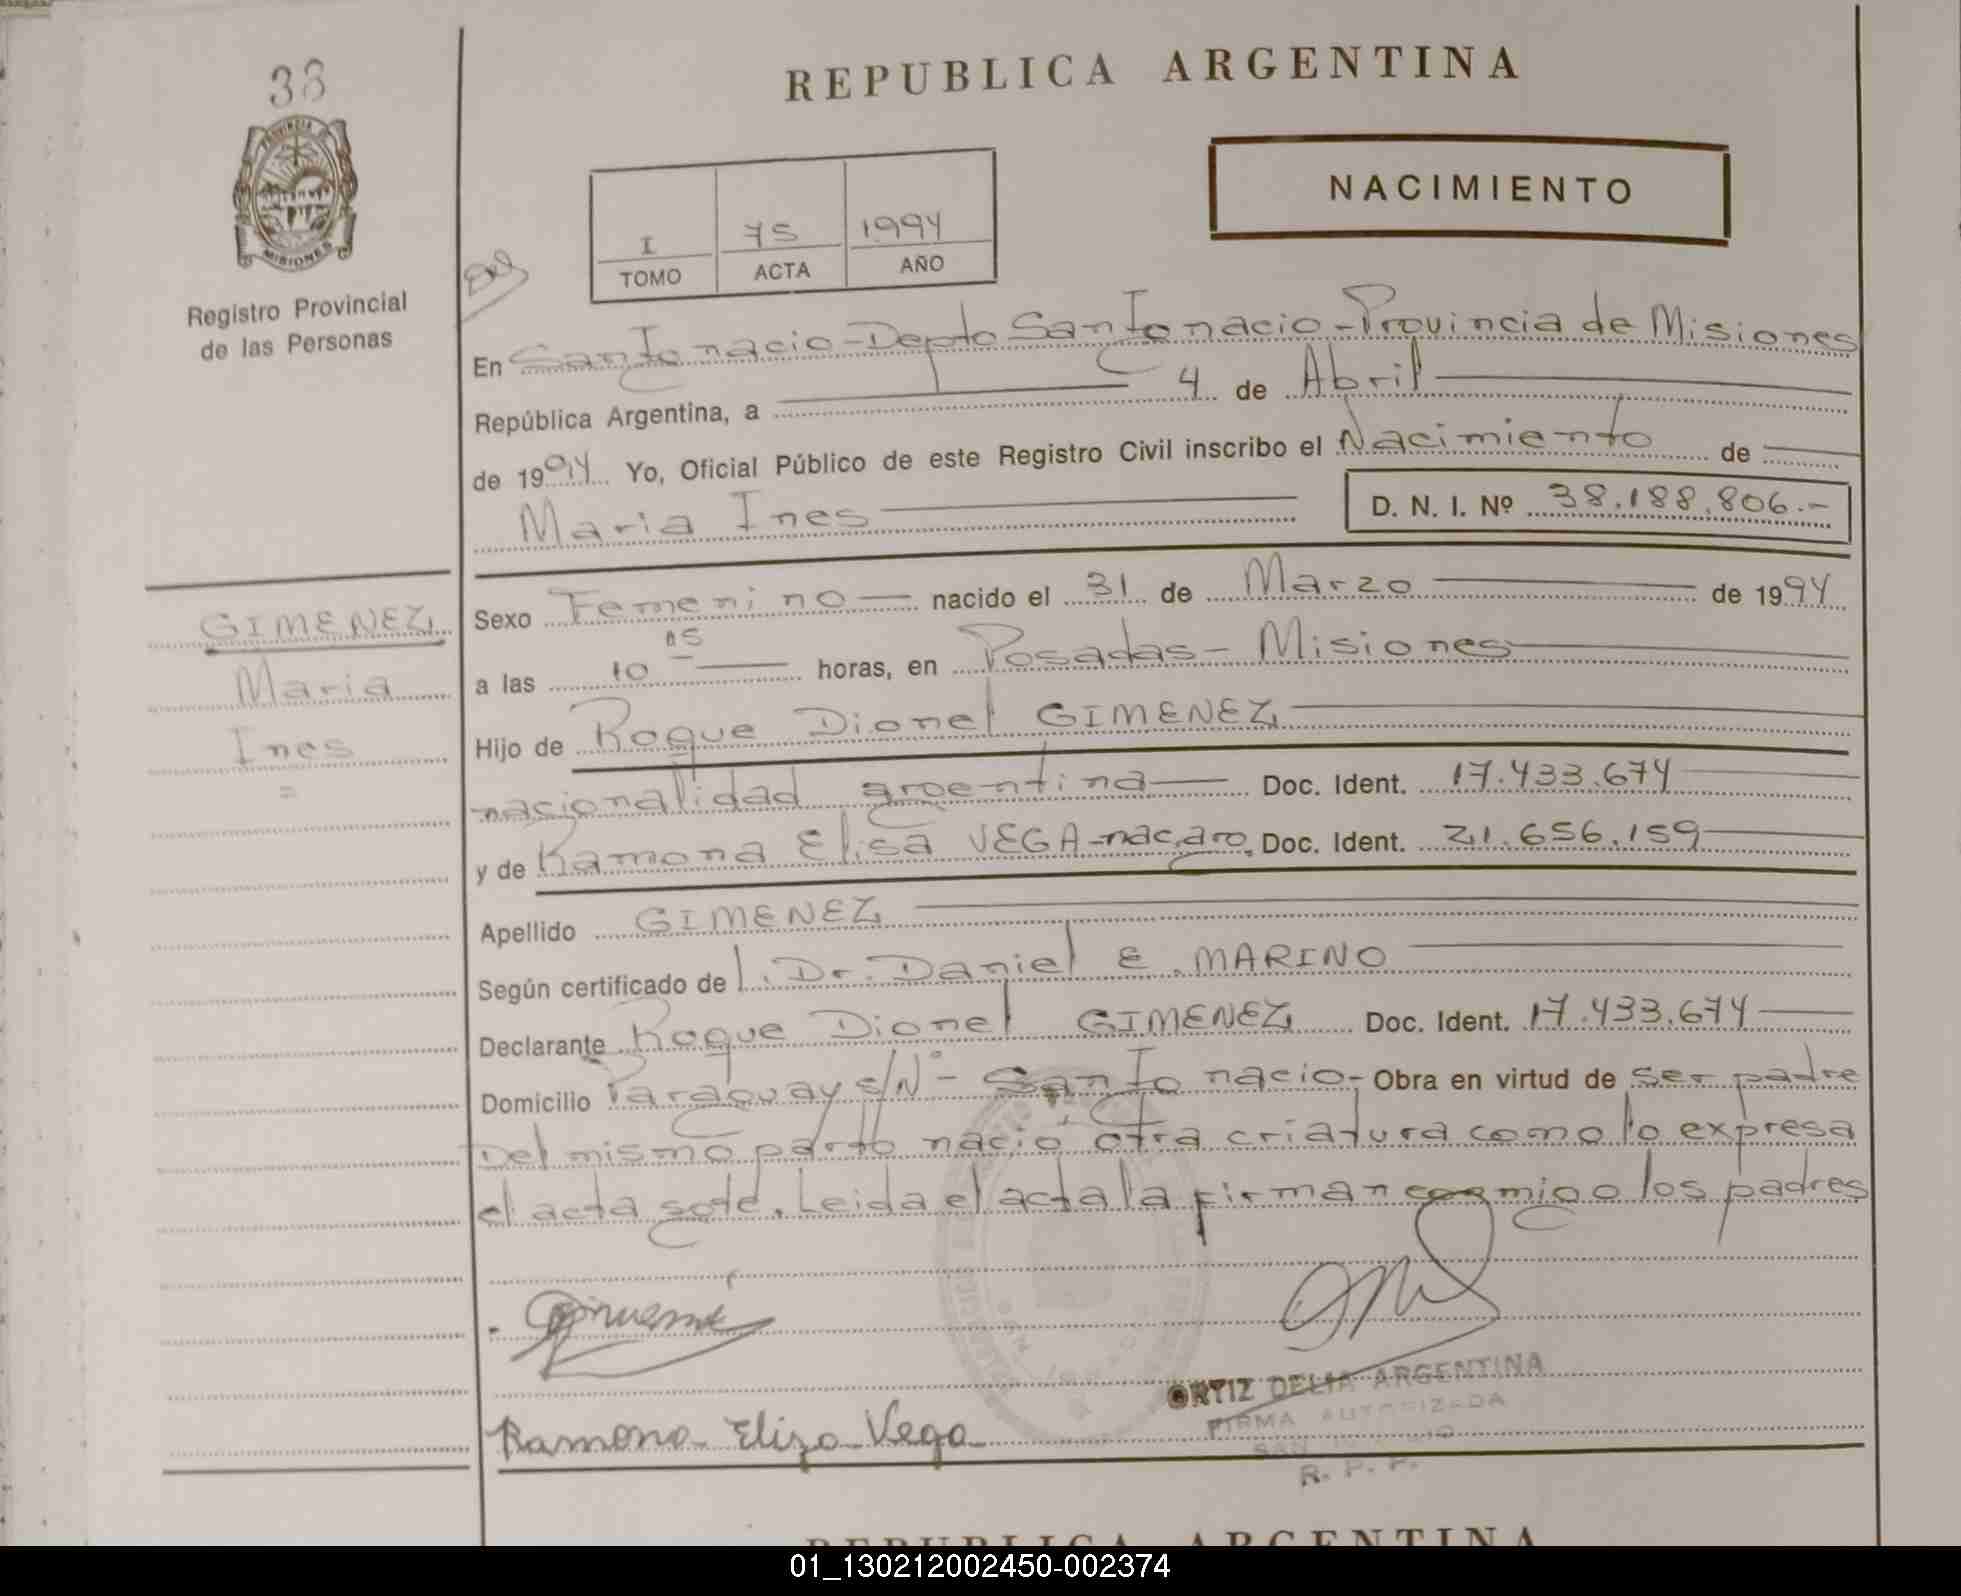 38
REPUBLICA ARGENTINA
NACIMIENTO
PROVINCIA DE
MISIONES
Registro Provincial
de las Personas
I 75 1994
TOMO ACTA AÑO
En San Ignacio-Depto San Ignacio-Provincia de Misiones
República Argentina, a 4 de Abril
de 1994 Yo, Oficial Público de este Registro Civil inscribo el Nacimiento de
Maria Ines D. N. I. Nº 38.188.806.-
GIMENEZ
Maria
Ines
Sexo Femenino nacido el 31 de Marzo de 1994
a las 10 05 horas, en Posadas- Misiones
Hijo de Roque Dionel GIMENEZ
nacionalidad argentina Doc. Ident. 17.433.674
y de Ramona Elisa VEGA-nac.arg. Doc. Ident. 21.656.159
Apellido GIMENEZ
Según certificado de l. Dr. Daniel E. MARINO
Declarante Roque Dionel GIMENEZ Doc. Ident. 17.433.674
Domicilio Paraguay s/Nº- San Ignacio- Obra en virtud de ser padre
Del mismo parto nació otra criatura como lo expresa
el acta sgte. Leida el acta la firman conmigo los padres
ORTIZ DELIA ARGENTINA
FIRMA AUTORIZADA
SAN IGNACIO
R. P. P.
Ramona Eliza Vega
REPUBLICA ARGENTINA
01_130212002450-002374